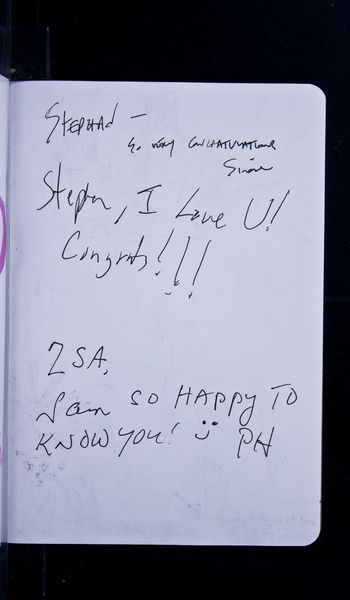 Stephan -
So very congratulations
Simon
Stephn, I Love U!
Congrats!!!
ZSA,
I am SO HAPPY TO
KNOW YOU! PH